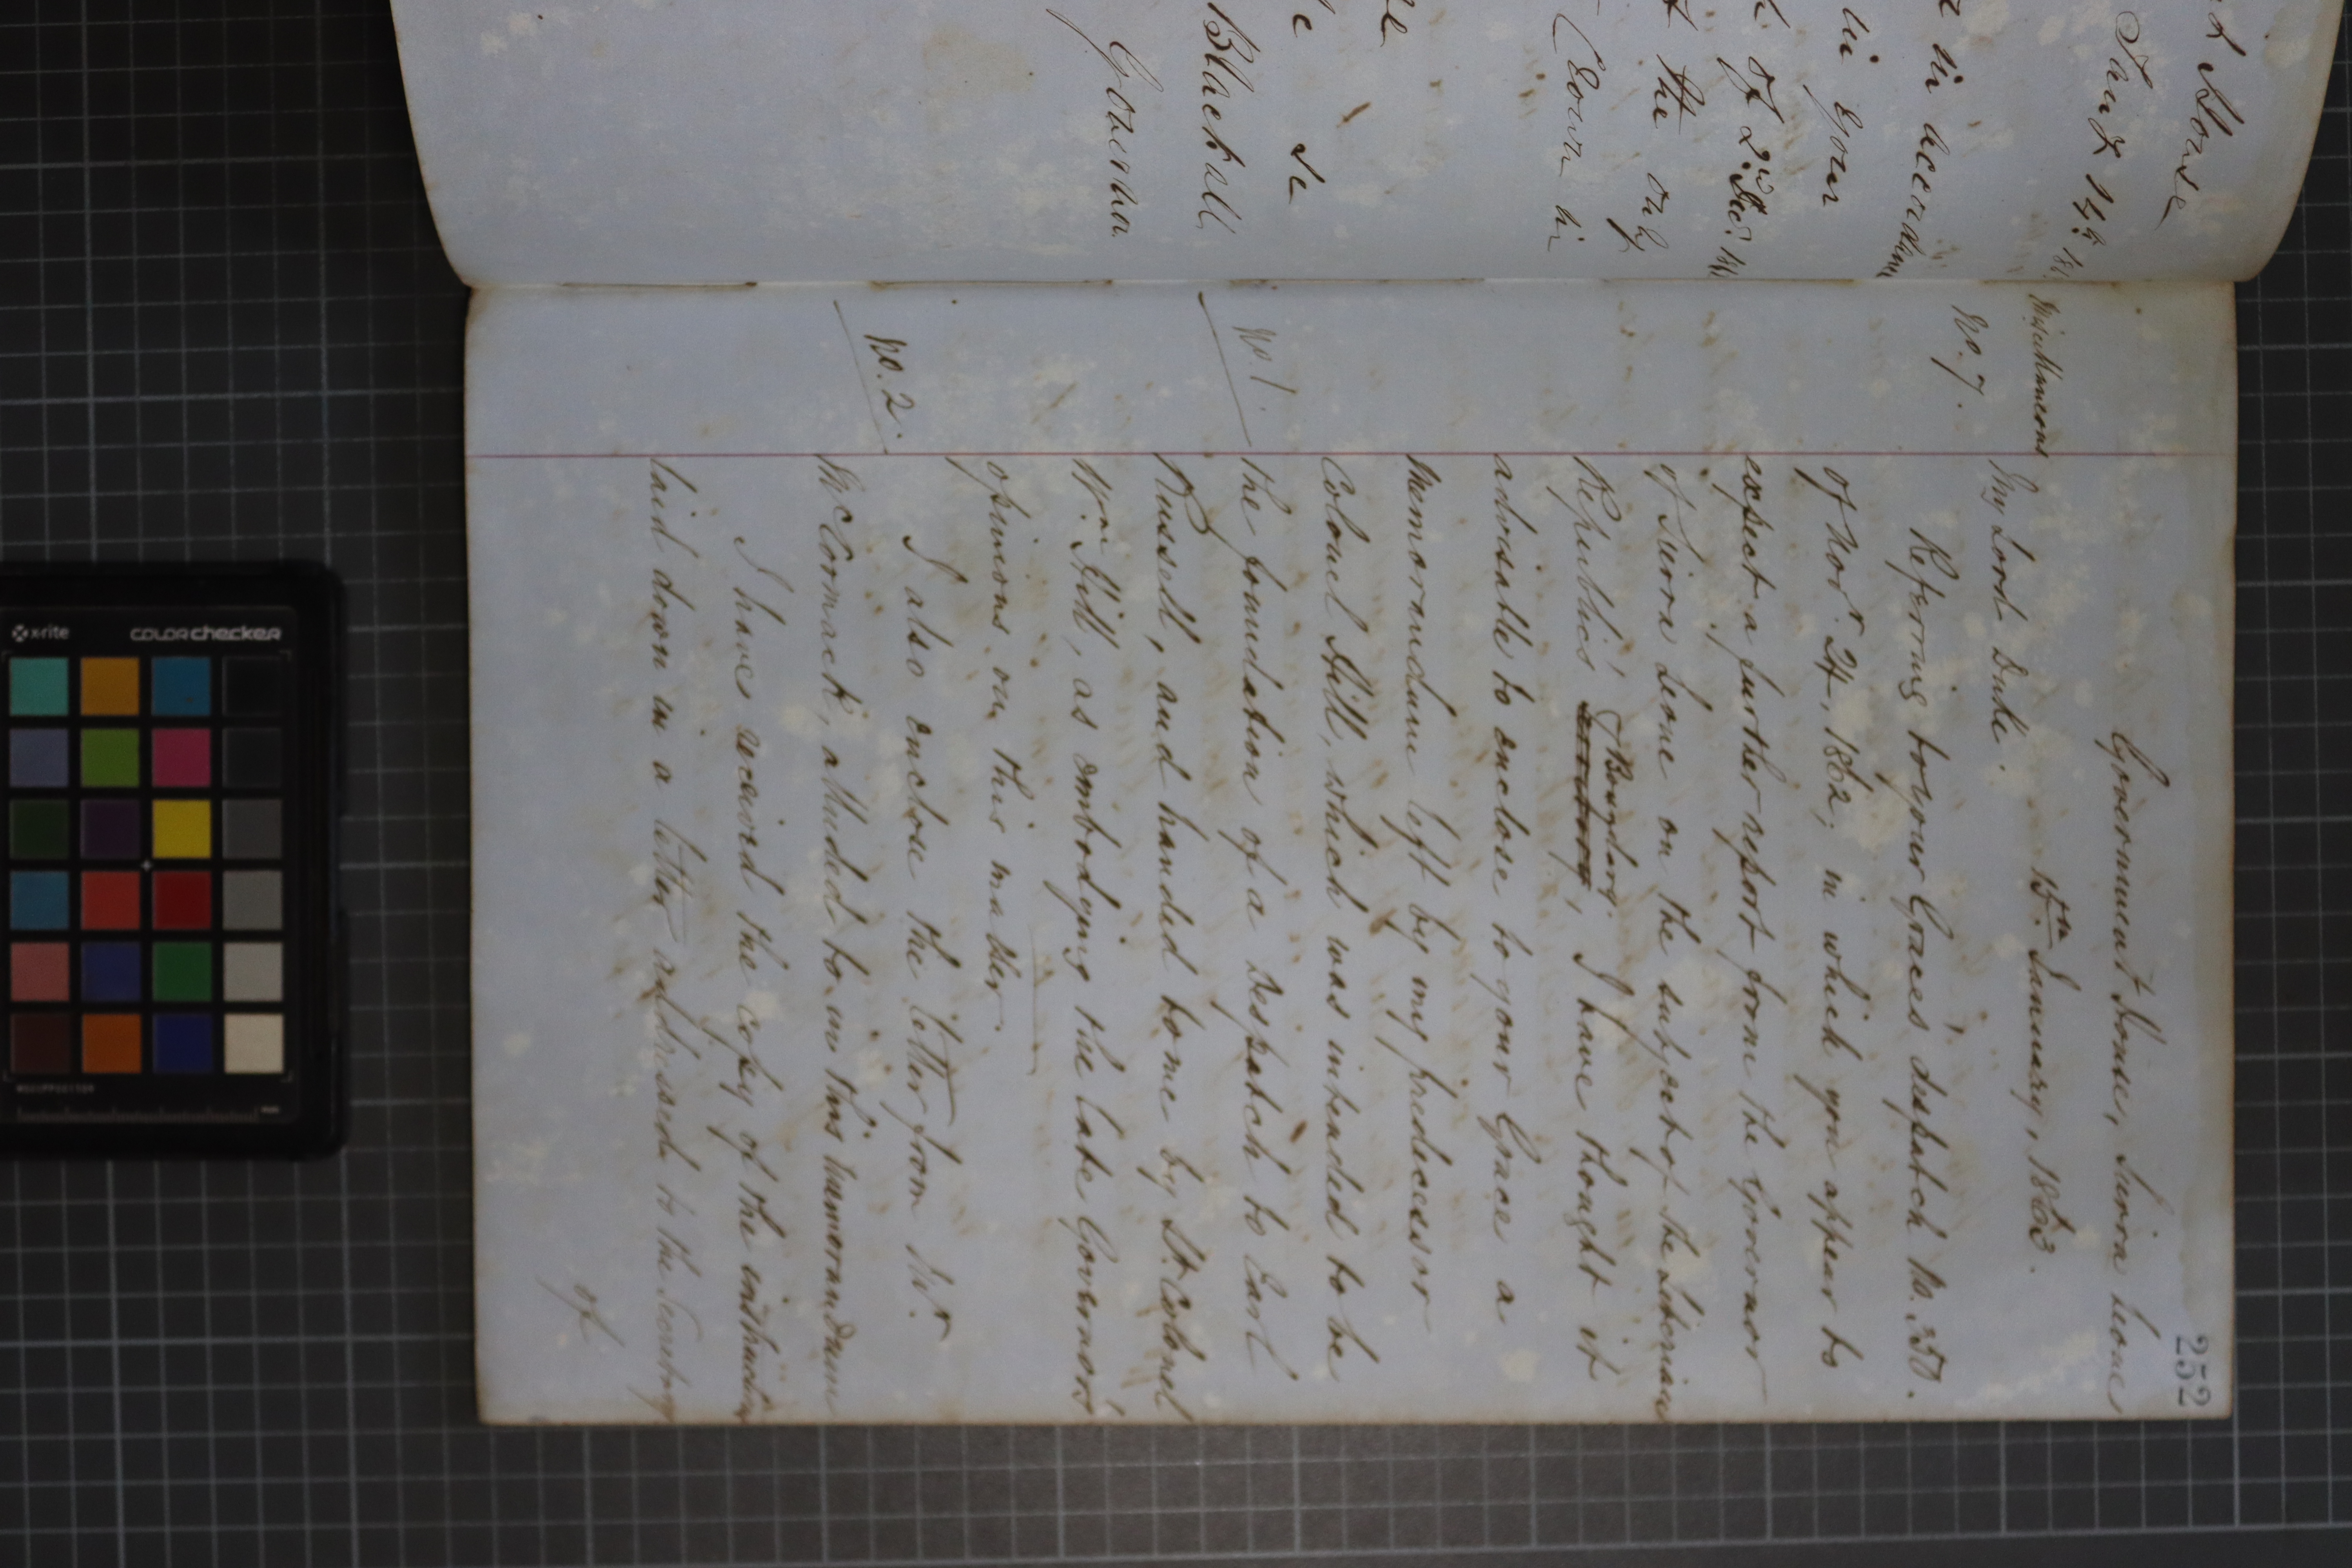 t House
Jany 14th 186
in accordance
in your
of 2nd Decr 186
t the only
Crown in
se
Blackall
Governor
252
Government House, Sierra Leone
15th January, 1863.
Miscellaneous
No. 7.
My Lord Duke.
Referring to your Graces despatch No. 350.
of Novr. 24, 1862, in which you appear to
expect a further report from the Governor
of Sierra Leone on the subject of the Liberian
Boundary
Republics', I have thought it
advisable to enclose to your Grace a
Memorandum left by my predecessor
Colonel Hill, which was intended to be
No 1.
the foundation of a Despatch to Earl
Russell, and handed to me by Lt. Colonel
Wm Hill, as embodying the late Governors'
opinions on this matter.
I also enclose the letter from Mr.
No. 2.
McCormack, alluded to in this memorandum
I have received the copy of the instruction
laid down in a letter addressed to the Secretary
of
x-rite
colorchecker